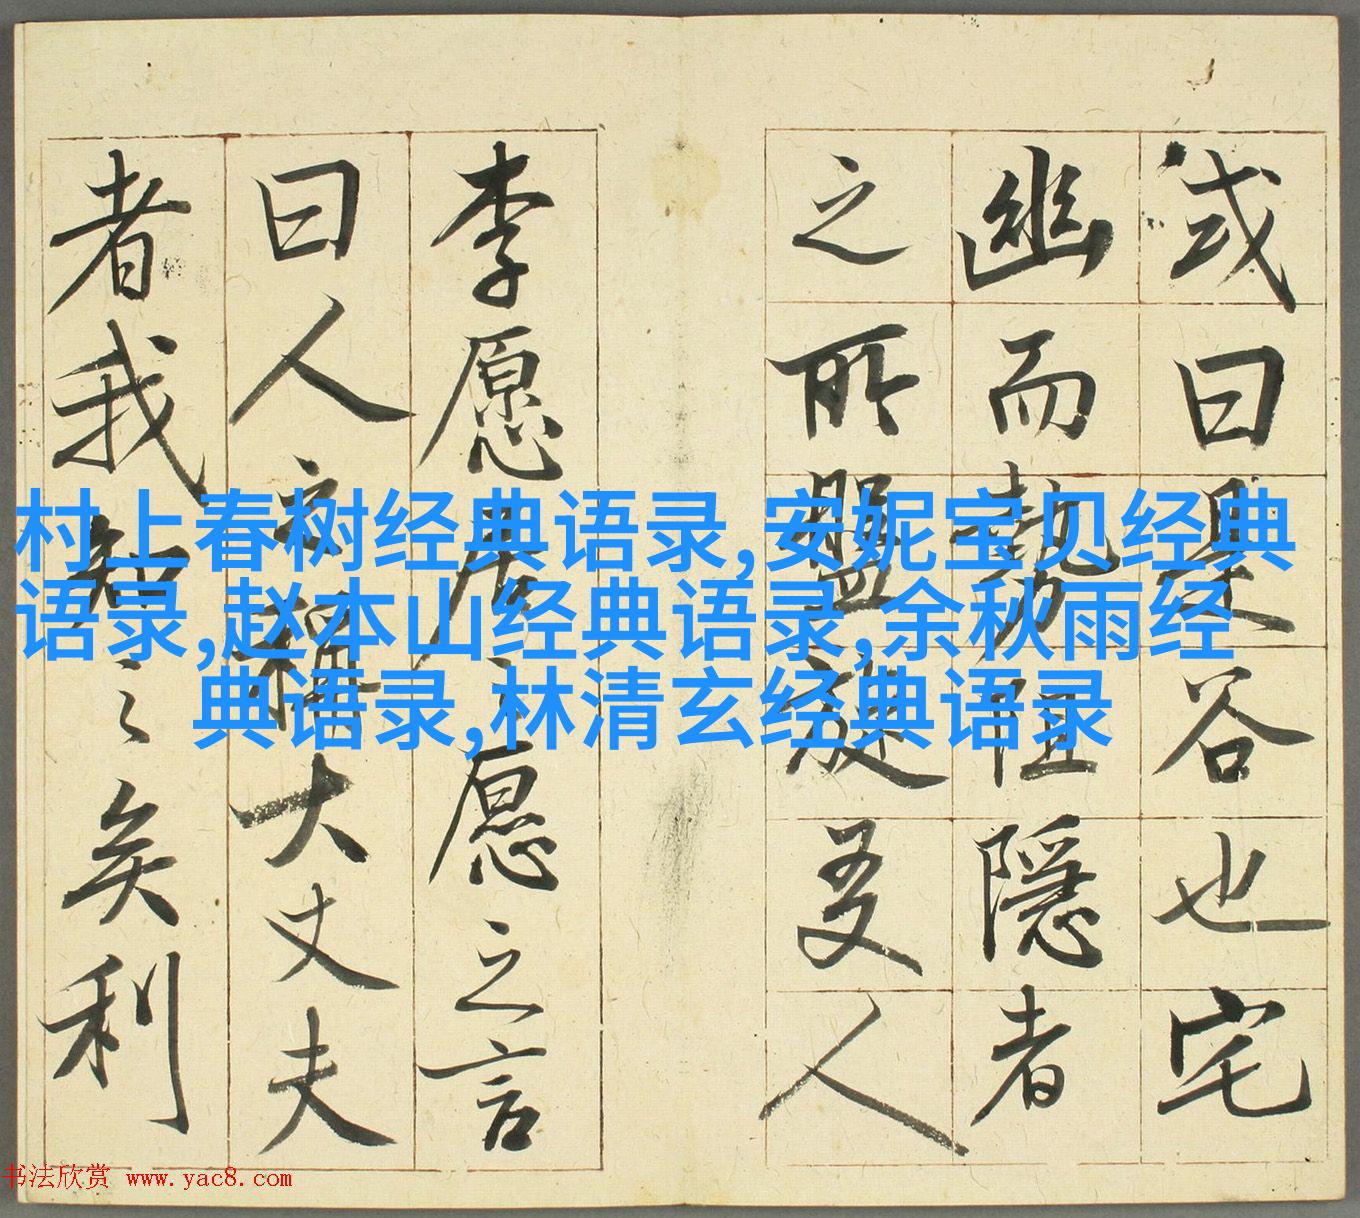 或曰是谷也宅
幽而勢阻隱者
之所盤旋友人
李愿居之愿之言
曰人之稱大丈夫
者我知之矣利
村上春树经典语录,安妮宝贝经典
语录,赵本山经典语录,余秋雨经
典语录,林清玄经典语录
书法欣赏 www.yac8.com